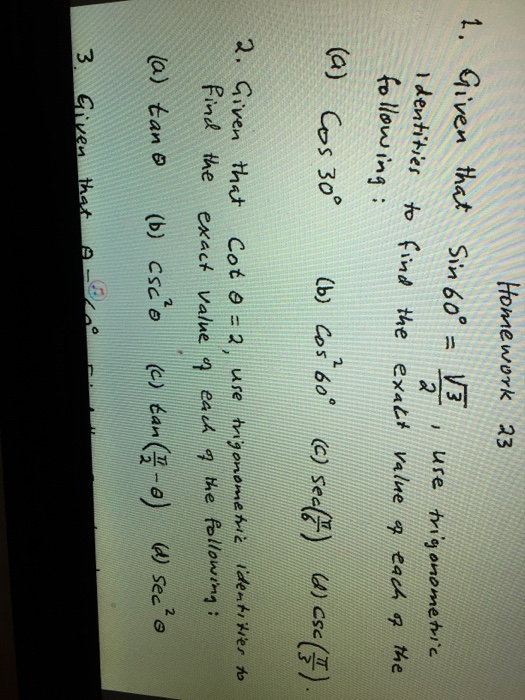 Homework 23
1. Given that Sin 60° = √3/2, use trigonometric
identities to find the exact value of each of the
following:
(a) Cos 30° (b) Cos²60° (c) sec(π/6) (d) csc(π/3).
2. Given that Cot θ = 2, use trigonometric identities to
find the exact value of each of the following:
(a) tan θ (b) csc²θ (c) tan(π/2 - θ) (d) sec²θ
3. Given that θ =